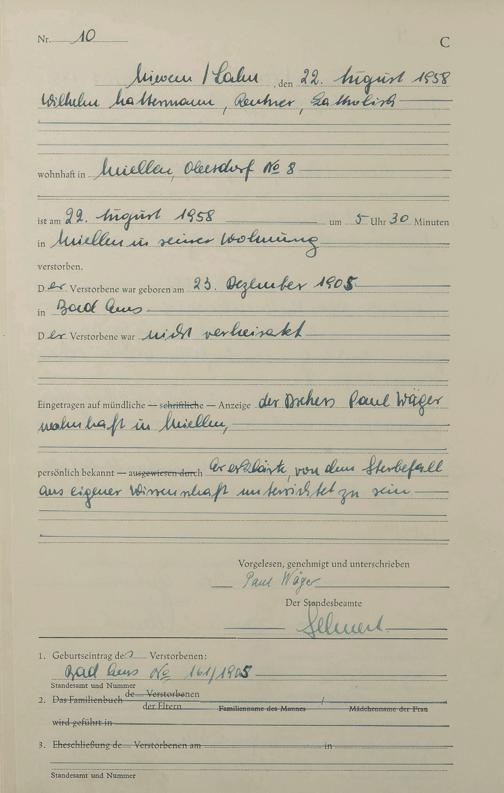 Nr. 10
C
Nievern / Lahn, den 22. August 1958
Wilhelm Hattermann, Rentner, Katholisch
wohnhaft in Miellen, Oberdorf No 8
ist am 22. August 1958 um 5 Uhr 30 Minuten
in Miellen in seiner Wohnung
verstorben.
Der Verstorbene war geboren am 23. Dezember 1905
in Bad Ems
Der Verstorbene war nicht verheiratet
Eingetragen auf mündliche — schriftliche — Anzeige der Drehers Paul Wäger
wohnhaft in Miellen,
persönlich bekannt — ausgewiesen durch Er erklärte, von dem Sterbefall
aus eigener Wissenschaft unterrichtet zu sein
Vorgelesen, genehmigt und unterschrieben
Paul Wäger
Der Standesbeamte
1. Geburtseintrag des Verstorbenen:
Bad Ems No 161/1905
Standesamt und Nummer
2. Das Familienbuch de Verstorbenen
der Eltern Familienname des Mannes / Mädchenname der Frau
wird geführt in
3. Eheschließung de Verstorbenen am in
Standesamt und Nummer